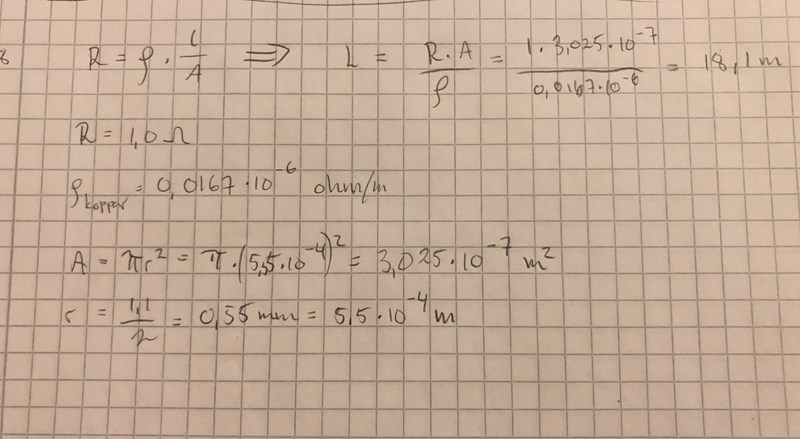 8 R = ρ · l/A ⟹ L = R·A/ρ = 1·3,025·10⁻⁷/0,0167·10⁻⁶ = 18,1 m
R = 1,0 Ω
ρ_kopper = 0,0167·10⁻⁶ ohm/m
A = πr² = π·(5,5·10⁻⁴)² = 3,025·10⁻⁷ m²
r = 1,1/2 = 0,55 mm = 5,5·10⁻⁴ m